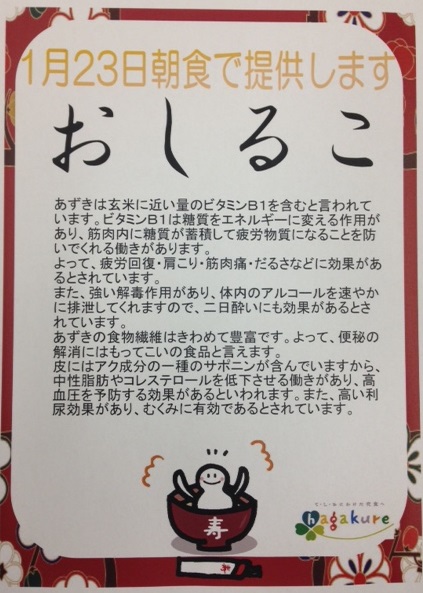 1月23日朝食で提供します
おしるこ
あずきは玄米に近い量のビタミンB1を含むと言われて
います。ビタミンB1は糖質をエネルギーに変える作用が
あり、筋肉内に糖質が蓄積して疲労物質になることを防
いでくれる働きがあります。
よって、疲労回復・肩こり・筋肉痛・だるさなどに効果があ
るとされています。
また、強い解毒作用があり、体内のアルコールを速やか
に排泄してくれますので、二日酔いにも効果があるとさ
れています。
あずきの食物繊維はきわめて豊富です。よって、便秘の
解消にはもってこいの食品と言えます。
皮にはアク成分の一種のサポニンが含んでいますから、
中性脂肪やコレステロールを低下させる働きがあり、高
血圧を予防する効果があるといわれます。また、高い利
尿効果があり、むくみに有効であるとされています。
寿
hagakure